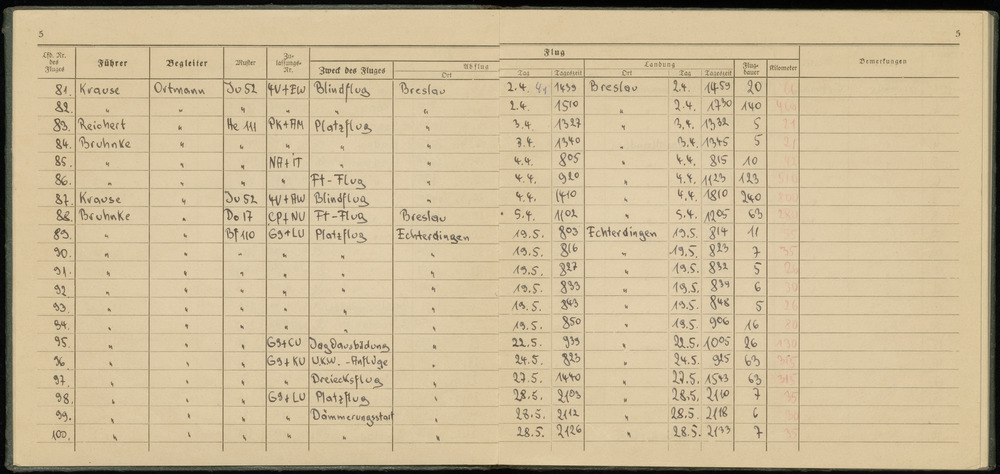 5 5
Flug
Lfd. Nr. des Fluges Führer Begleiter Muster Zulassungs-Nr. Zweck des Fluges Abflug Landung Flugdauer Kilometer Bemerkungen
Ort Tag Tageszeit Ort Tag Tageszeit
81. Krause Ortmann Ju 52 4V+BW Blindflug Breslau 2.4. 41 1439 Breslau 2.4. 1459 20
82. " " " " " " 2.4. 1510 " 2.4. 1730 140
83. Reichert " He 111 PK+AM Platzflug " 3.4. 1327 " 3.4. 1332 5
84. Bruhnke " " " " " 3.4. 1340 " 3.4. 1345 5
85. " " " NA+IT " " 4.4. 805 " 4.4. 815 10
86. " " " " Ft-Flug " 4.4. 920 " 4.4. 1123 123
87. Krause " Ju 52 4V+AW Blindflug " 4.4. 1410 " 4.4. 1810 240
88. Bruhnke " Do 17 CP+NU Ft-Flug Breslau 5.4. 1102 " 5.4. 1205 63
89. " " Bf 110 G9+LU Platzflug Echterdingen 19.5. 803 Echterdingen 19.5. 814 11
90. " " " " " " 19.5. 816 " 19.5. 823 7 35
91. " " " " " " 19.5. 827 " 19.5. 832 5
92 " " " " " " 19.5. 833 " 19.5. 839 6 30
93. " " " " " " 19.5. 843 " 19.5. 848 5
94. " " " " " " 19.5. 850 " 19.5. 906 16 80
95. " " " G9+CU Jagdausbildung " 22.5. 939 " 22.5. 1005 26 130
96. " " " G9+KU UKW.-Anflüge " 24.5. 823 " 24.5. 925 63
97. " " " " Dreiecksflug " 27.5. 1440 " 27.5. 1543 63 315
98. " " " G9+LU Platzflug " 28.5. 2103 " 28.5. 2110 7 35
99. " " " " Dämmerungsstart " 28.5. 2112 " 28.5. 2118 6 30
100. " " " " " " 28.5. 2126 " 28.5. 2133 7 35